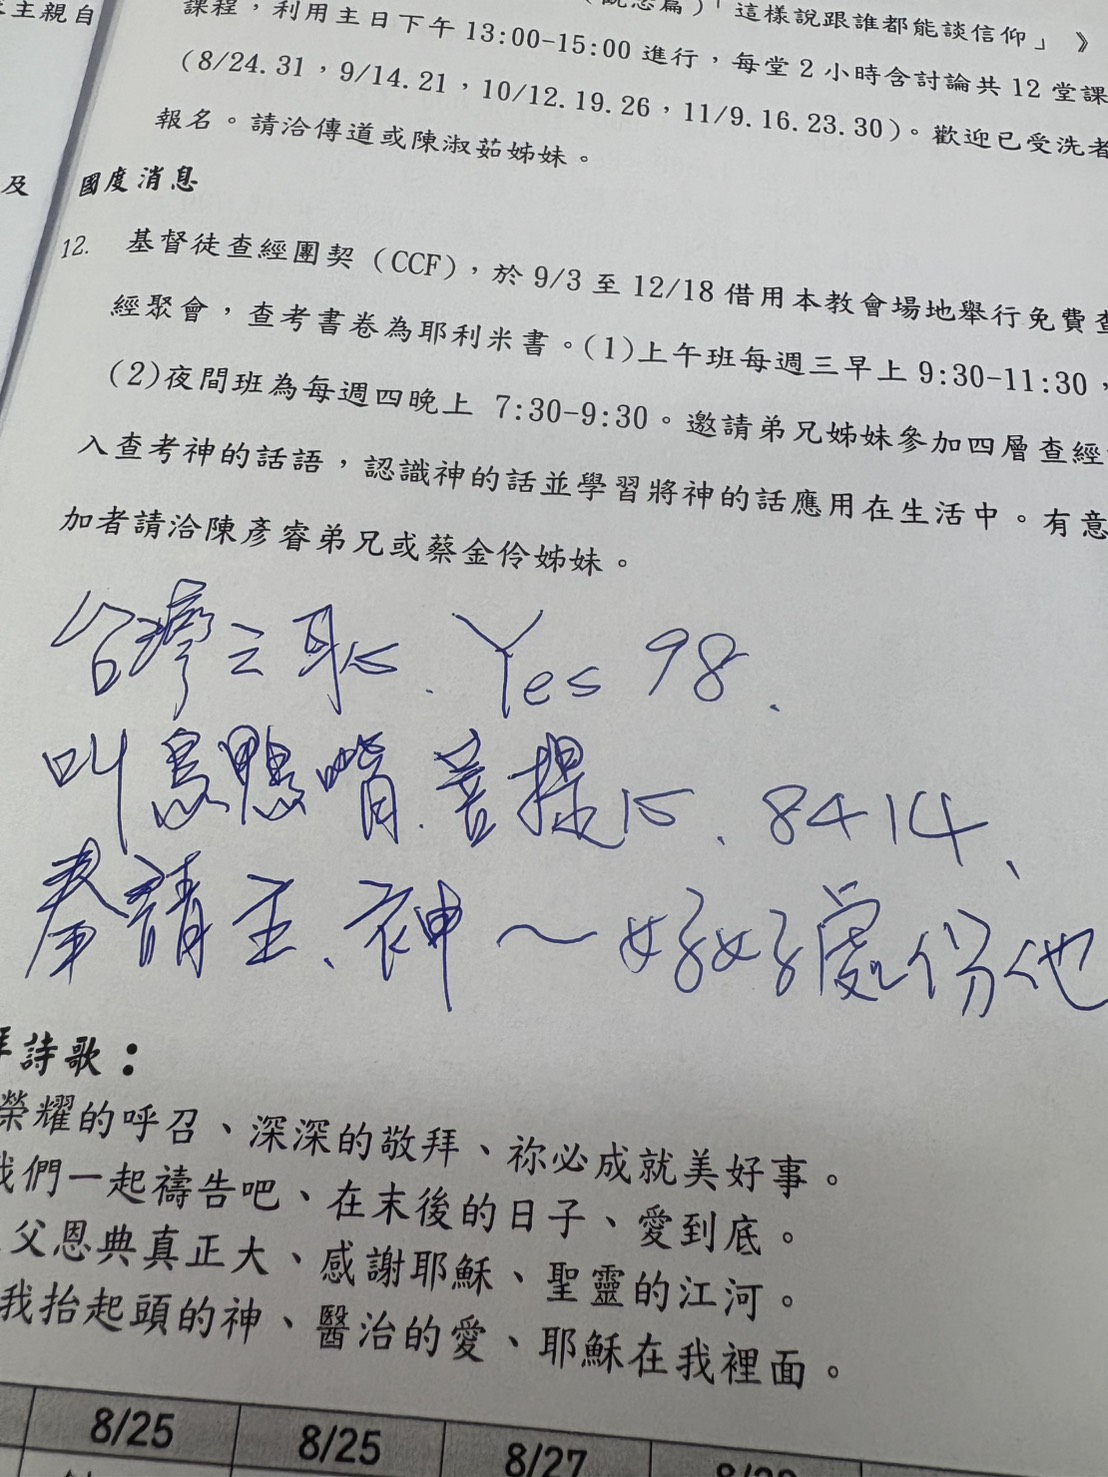 主親自
課程，利用主日下午13:00-15:00進行，每堂2小時含討論共12堂課
「這樣說跟誰都能談信仰」》
(8/24.31，9/14.21，10/12.19.26，11/9.16.23.30)。歡迎已受洗者
報名。請洽傳道或陳淑茹姊妹。
及
國度消息
12. 基督徒查經團契（CCF），於9/3至12/18借用本教會場地舉行免費查
經聚會，查考書卷為耶利米書。(1)上午班每週三早上9:30-11:30，
(2)夜間班為每週四晚上 7:30-9:30。邀請弟兄姊妹參加四層查經
入查考神的話語，認識神的話並學習將神的話應用在生活中。有意
加者請洽陳彥睿弟兄或蔡金伶姊妹。
台灣之恥. Yes 98.
叫烏鴨嘴.菩提15、8414、
奉請主、神～好好處份他
拜詩歌：
榮耀的呼召、深深的敬拜、祢必成就美好事。
我們一起禱告吧、在末後的日子、愛到底。
父恩典真正大、感謝耶穌、聖靈的江河。
我抬起頭的神、醫治的愛、耶穌在我裡面。
8/25 8/25 8/27